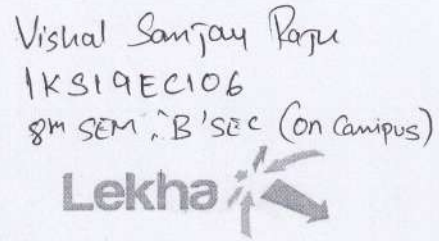 Vishal Sanjay Raju
1KS19EC106
8th SEM, 'B' SEC (On Campus)
Lekha